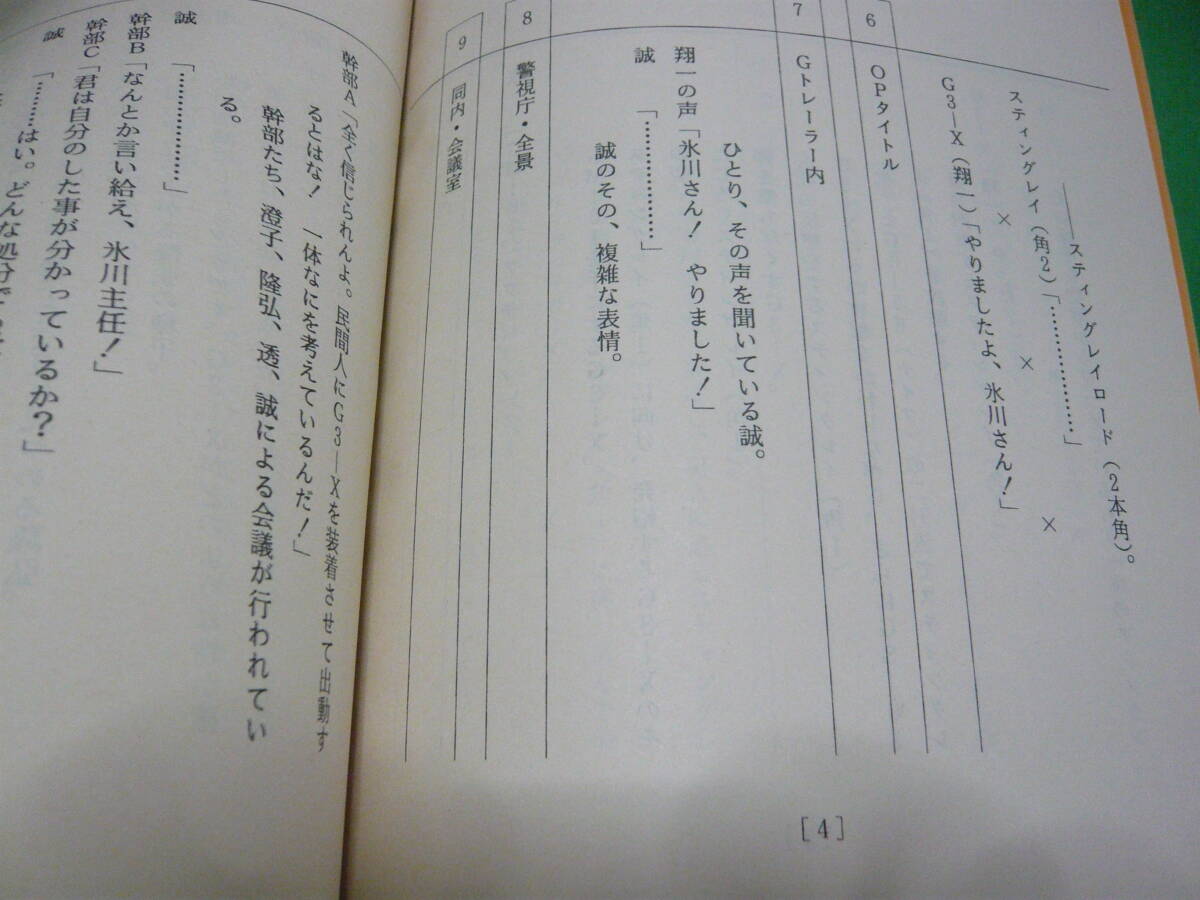 ――スティングレイロード(2本角)。
スティングレイ(角2)「………………」
×　×　×
G3―X(翔一)「やりましたよ、氷川さん!」
6　OPタイトル
7　Gトレーラー内
ひとり、その声を聞いている誠。
翔一の声「氷川さん!　やりました!」
誠　「………………」
誠のその、複雑な表情。
8　警視庁・全景
9　同内・会議室
[4]
幹部A「全く信じられんよ。民間人にG3―Xを装着させて出動す
るとはな!　一体なにを考えているんだ!」
幹部たち、澄子、隆弘、透、誠による会議が行われてい
る。
誠　「………………」
幹部B「なんとか言い給え、氷川主任!」
幹部C「君は自分のした事が分かっているか?」
誠　「………はい。どんな処分で